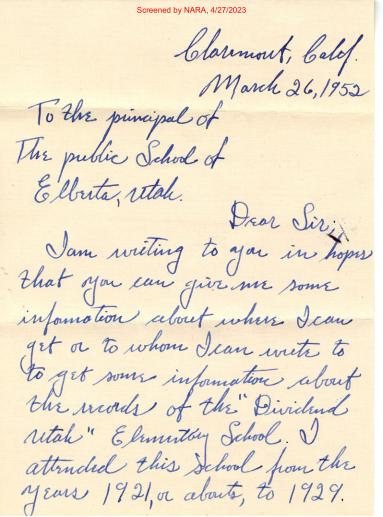 Screened by NARA, 4/27/2023
Claremont, Calif.
March 26, 1952
To the principal of
The public School of
Elberta, Utah.
Dear Sir;
I am writing to you in hopes
that you can give me some
infomation about where I can
get or to whom I can write to
to get some infomation about
the records of the "Dividend
Utah" Elementary School. I
attended this school from the
years 1921, or abouts, to 1929.